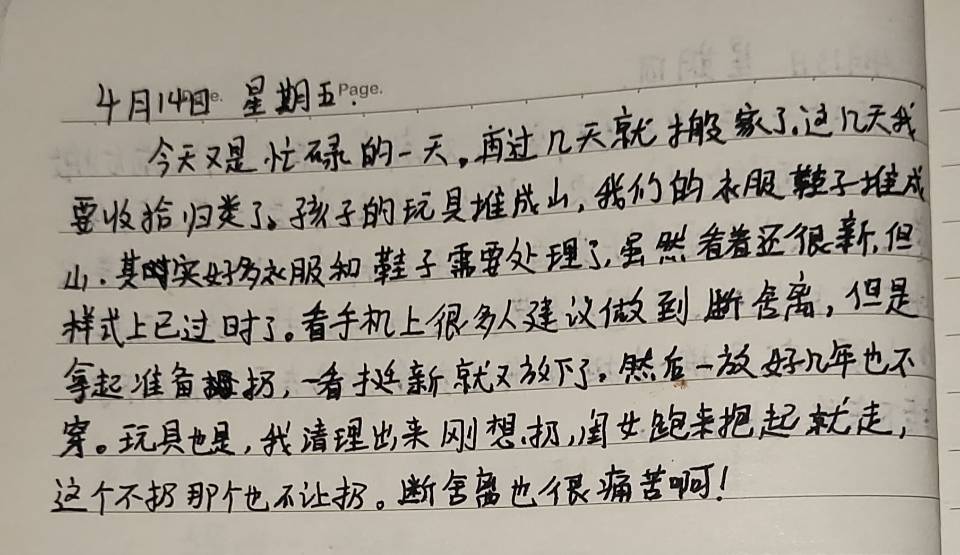 4月14日 星期五 Page.
今天又是忙碌的一天。再过几天就搬家了,这几天我
要收拾归类了。孩子的玩具堆成山,我们的衣服鞋子堆成
山.其实好多衣服和鞋子需要处理了,虽然看着还很新,但
样式上已过时了。看手机上很多人建议做到断舍离,但是
拿起准备扔,一看挺新就又放下了。然后一放好几年也不
穿。玩具也是,我清理出来刚想扔,闺女跑来抱起就走,
这个不扔那个也不让扔。断舍离也很痛苦啊!